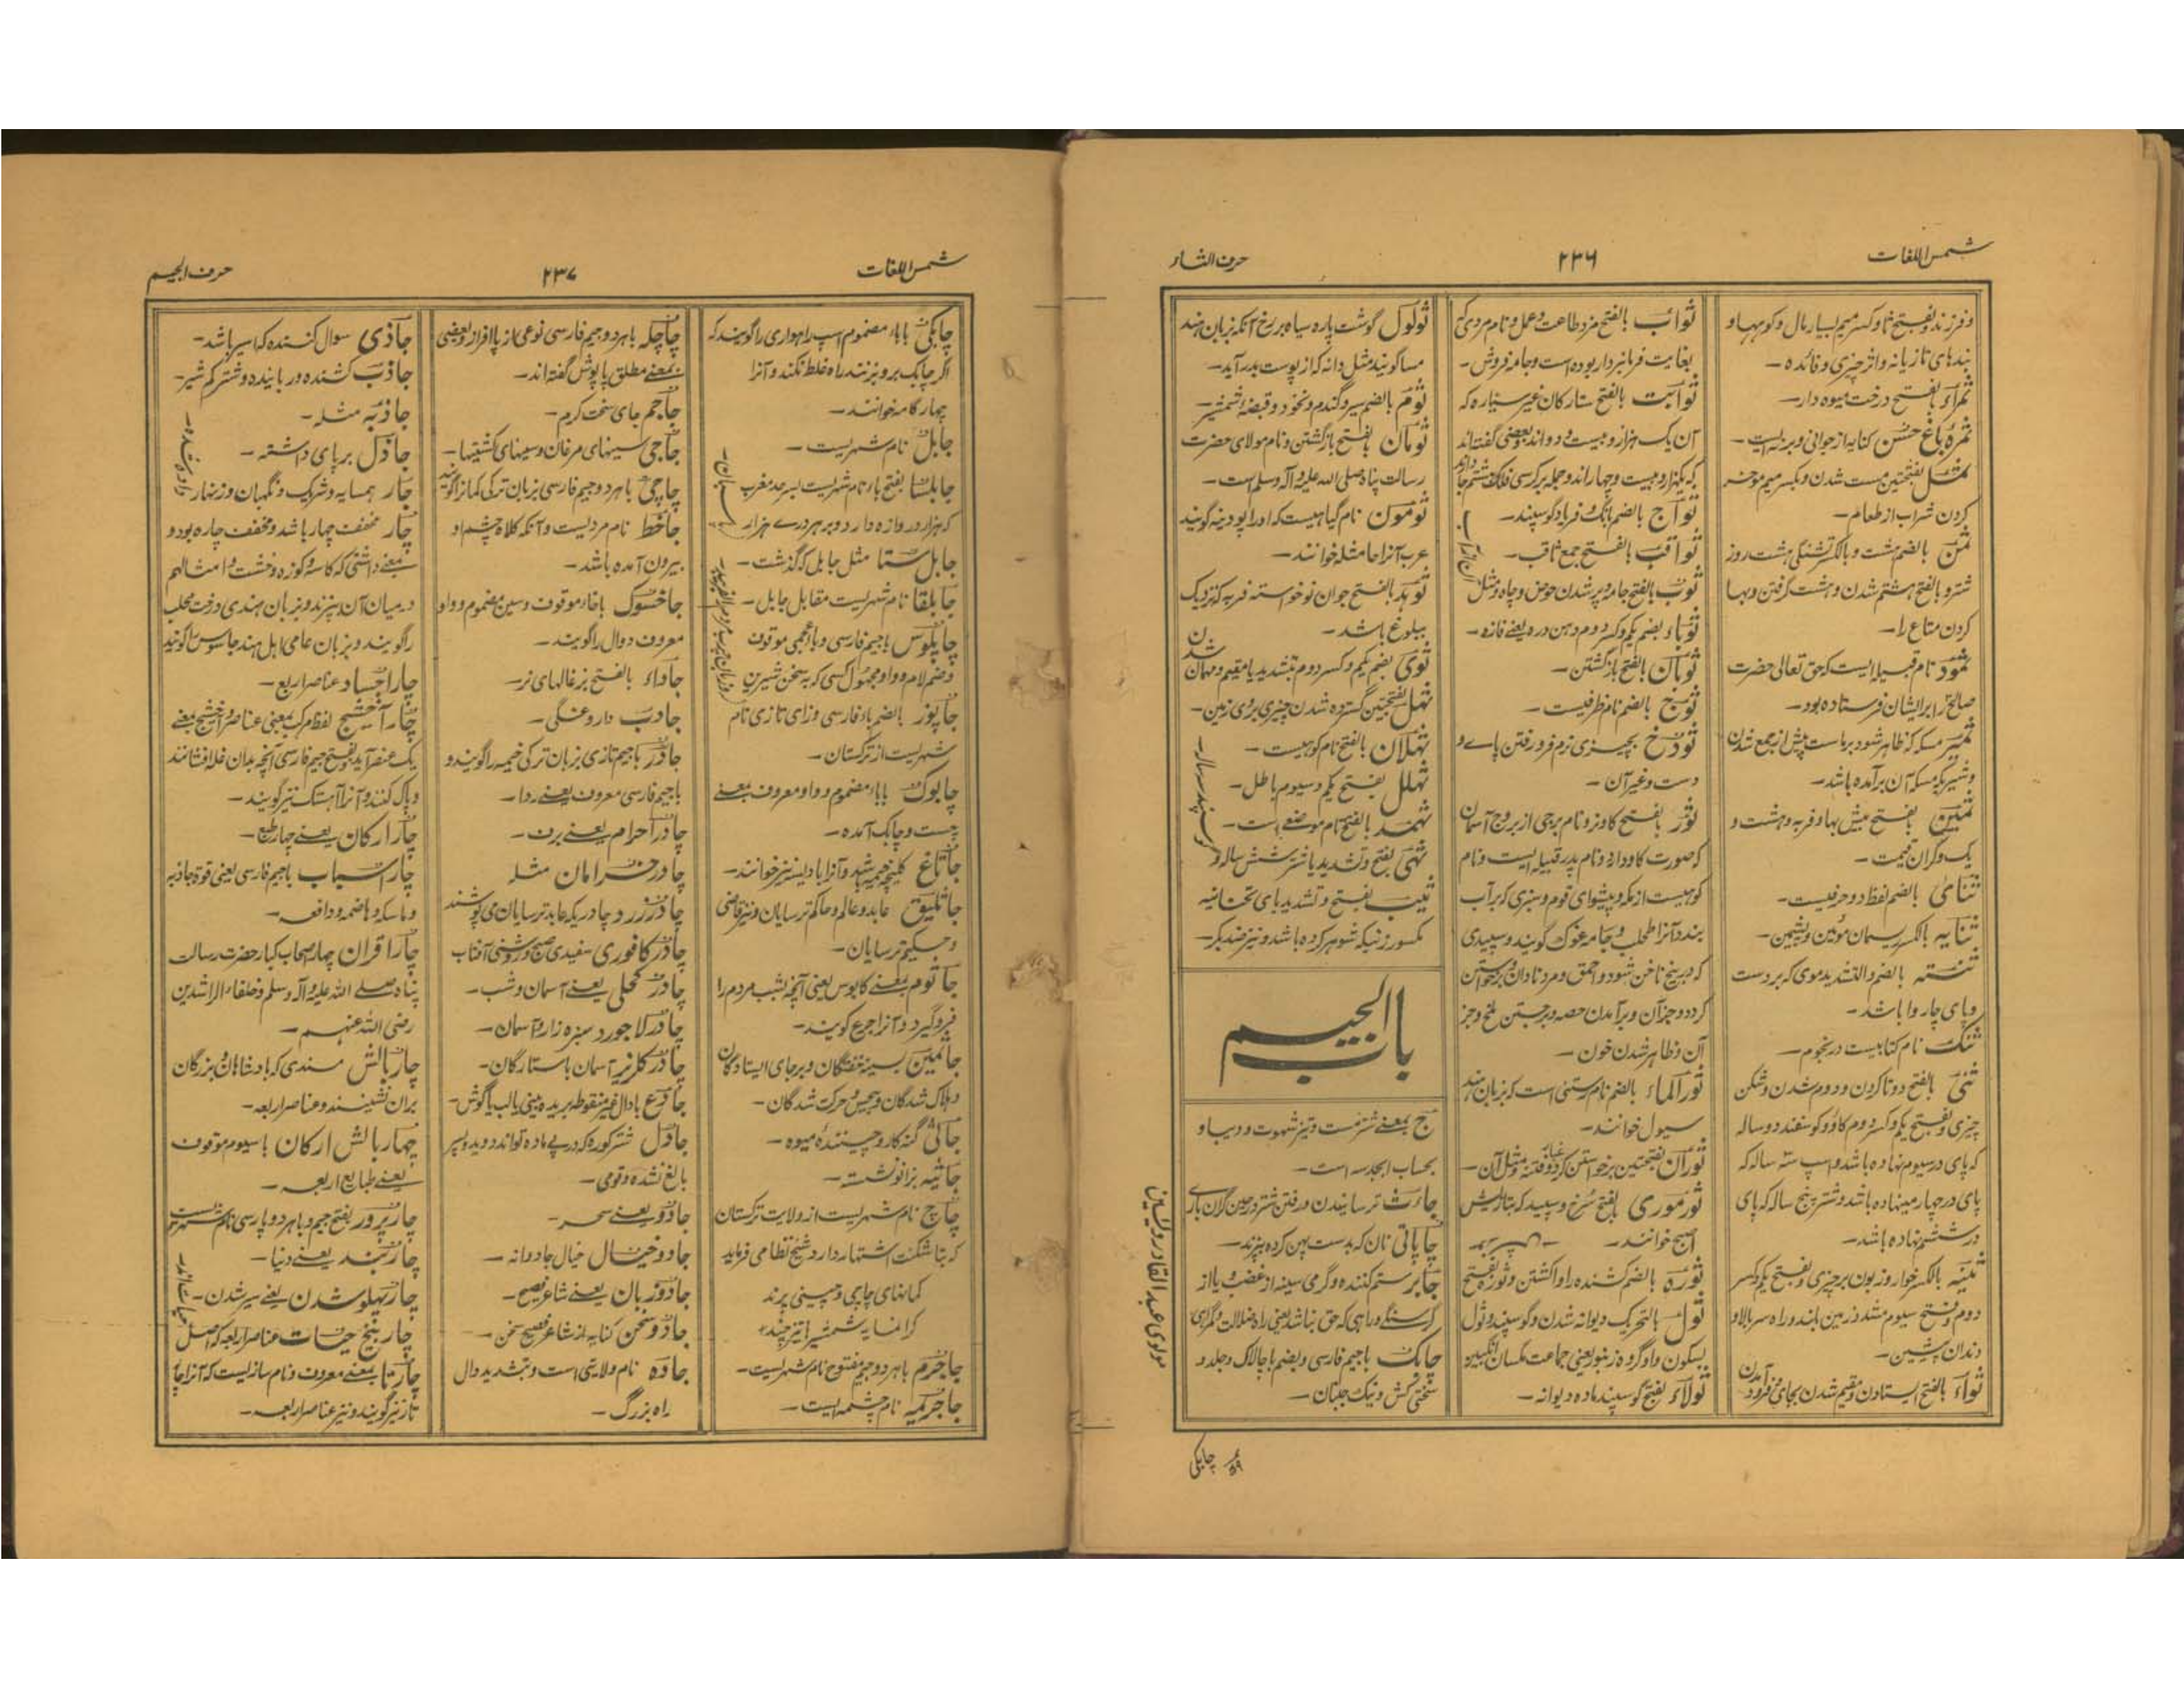 شمس اللغات
۲۳۶
حرف الثاء
و فرزند و بفتح ثا و کسر میم بسیار مال و کوبها و
بندهای تازیانه و اثر چیزی و فائده —
ثمراء بفتح درخت میوه دار —
ثمره باغ حسن کنایه از جوانی و بر لیست —
ثمل بفتحتین مست شدن و بکسر میم موخر
کردن شراب از طعام —
ثمن بالضم هشت و بالکسر تشنگی هشت روز
شتر و بالفتح هشتم شدن و هشت گرفتن و بها
کردن متاع را —
ثمود نام قبیله ایست که حق تعالی حضرت
صالح را بر ایشان فرستاده بود —
ثمیر مسکه که ظاهر شود بر ماست پیش از جمع شدن
و شیر که مسکه آن برآمده باشد —
ثمین بفتح بیش بها و فربه و هشت و
یک و گران قیمت —
ثنائی بالضم لفظ دو حرفیست —
ثنایه بالکسر ریسمان موئین و پشمین —
ثنته بالضم و التشدید موی که بر دست
و پای چاروا باشد —
ثنک نام کتابیست در نجوم —
ثنی بالفتح دو تا کردن و دوم شدن و شکن
چیزی و بفتح یکم و کسر دوم گاو و گوسفند دو ساله
که پای در سیوم نهاده باشد و اسپ سه ساله که
پای در چهارم نهاده باشد و شتر پنج ساله که پای
در ششم نهاده باشد —
ثنیه بالکسر خوار و زبون بر چیزی و بفتح یکم و کسر
دوم و فتح سیوم مشدد زمین بلند و راه سر بالا و
دندان پیشین —
ثواء بالفتح ایستادن و مقیم شدن بجای و فرود آمدن
ثواب بالفتح مزد طاعت و عمل و نام مردی که
بغایت فرمانبردار بوده است و جامه فروش —
ثوابت بالفتح ستارگان غیر سیاره که
آن یک هزار و بیست و دو اند و بعضی گفته اند
که یکهزار و بیست و چهار اند و جمله بر کرسی فلک هشتم جا دارند
ثواج بالضم بانگ و فریاد گوسپند —
ثواقب بالفتح جمع ثاقب —
ثوب بالفتح جامه و پر شدن حوض و چاه و مثل
ثوباء بضم یکم و کسر دوم دهن دره یعنی فازه —
ثوبان بالفتح بازگشتن —
ثوج بالضم نام ظرفیست —
ثوخ بچیزی نرم فرو رفتن پای و
دست و غیر آن —
ثور بفتح گاو نر و نام برجی از بروج آسمان
که صورت گاو دارد و نام پدر قبیله ایست و نام
کوهیست از مکه و پیشوای قوم و سبزی که بر آب
بندد آنرا طحلب و جامه غوک گویند و سپیدی
که در بیخ ناخن شود و احمق و مرد نادان و برخواستن
گرد و جز آن و برآمدن حصبه و برجستن ملخ و جز
آن و ظاهر شدن خون —
ثور الماء بالضم نام رستنی است که بزبان هند
سیول خوانند —
ثوران بفتحتین برخواستن گرد و غبار و فتنه و مثل آن —
ثورموری بالفتح سرخ و سپید که بتازیش
اصبح خوانند —
ثوره بالضم کشنده را واکشتن و ثوره بفتح
ثول بالتحریک دیوانه شدن و گوسپند و ثول
بسکون واو گروه زنبور یعنی جماعت مگسان انگبین
ثولاء بفتح گوسپند ماده دیوانه —
ثولول گوشت پاره سیاه بر رخ آنکه بزبان هند
مسا گویند مثل دانه که از پوست بدر آید —
ثوم بالضم سیر و گندم و نخود و قبضهٔ شمشیر —
ثومان بفتح بازگشتن و نام مولای حضرت
رسالت پناه صلی الله علیه و آله و سلم است —
ثومون نام گیاهیست که او را پودینه گویند
عرب آنرا حاشا خوانند —
ثوهد بالفتح جوان نوخواسته فربه که نزدیک
ببلوغ باشد —
ثوی بضم یکم و کسر دوم تشدید یا مقیم و مهمان شدن
ثهل بفتحتین گسترده شدن چیزی بر روی زمین —
ثهلان بالفتح نام کوهیست —
ثهلل بفتح یکم و سیوم باطل —
ثهمد بالفتح نام موضعی است —
ثهی بفتح و تشدید یا شتر شش ساله و گوسپند سه ساله —
ثیب بفتح و تشدید یای تحتانیه
مکسور زنیکه شوهر کرده باشد و نیز ضد بکر —
باب الجیم
ج بمعنے شتر مست و تیز شهوت و دیبا و
بحساب ابجد سه است —
جاءث ترسانیدن و رفتن شتر در حین گران باری
چاپاتی نان که بدست پهن کرده بپزند —
جابر ستم کننده و گرمی سینه از غضب و یا از
گرسنگی و راهی که حق نباشد یعنی راه ضلالت و گمراهی
چابک باجیم فارسی و بضم با چالاک و جلد و
سختی کش و نیک جنبان —
مولوی عبدالقادر رولسین
۵۹
چابکی
شمس اللغات
۲۳۷
حرف الجیم
چابکی بابا مضموم اسپ راهواری را گویند که
اگر چابک بر و بزنند راه غلط نکند و آنرا
چهار گامه خوانند —
جابل نام شهریست —
جابلسا بفتح با نام شهریست بسرحد مغرب
که هزار دروازه دارد و بر هر دری هزار پاسبان —
جابلستا مثل جابل که گذشت —
جابلقا نام شهریست مقابل جابل —
چاپلوس باجیم فارسی و با عجمی موقوف
و ضم لام و واو مجهول کسی که بسخن شیرین
جاپوز بالضم باء فارسی و زای تازی نام
شهریست از ترکستان —
چابوک بابا مضموم و واو معروف بمعنے
چست و چابک آمده —
جاتاغ کلیچهٔ خیمه باشد و آنرا بادریسه نیز خوانند —
جاثلیق عابد و عالم و حاکم ترسایان و نیز قاضی
و حکیم ترسایان —
جاثوم بمعنے کابوس یعنی آنچه شب مردم را
فروگیرد و آنرا جرع گویند —
جاثمین بسینه خفتگان و بر جای ایستادگان
و هلاک شدگان و بیحس و حرکت شدگان —
جانی گنه کار و چینندهٔ میوه —
جاثیه بزانو نشسته —
چاچ نام شهریست از ولایت ترکستان
که بتاشکنت اشتهار دارد شیخ نظامی فرماید
کمانهای چاچی و چینی پرند
گرانمایه شمشیرها تیز چند
جاجرم باهر دو جیم مفتوح نام شهریست —
جاجرمیه نام چشمه ایست —
چاچله باهر دو جیم فارسی نوعی از پا افزار و بعضی
بمعنے مطلق پاپوش گفته اند —
جاحم جای سخت گرم —
جاجی سینهای مرغان و سینهای کشتیها —
چاچی باهر دو جیم فارسی بزبان ترکی کمانرا گویند
جاحظ نام مردیست و آنکه کلاه چشم او
بیرون آمده باشد —
جاخسوک باخاء موقوف و سین مضموم و واو
معروف دوال را گویند —
جاداء بالفتح بزغالهای نر —
جادب داروغگی —
جادر باجیم تازی بزبان ترکی خیمه را گویند و
باجیم فارسی معروف یعنے ردا —
چادر احرام یعنے برف —
چادر خرامان مثله
چادر زرد چادریکه عابد ترسایان می پوشند
چادر کافوری سفیدی صبح و روشنی آفتاب
چادر کحلی یعنے آسمان و شب —
چادر لاجورد سبزه زار و آسمان —
چادر گلریز آسمان با ستارگان —
جادع بادال غیر منقوطه بریده بینی یا لب یا گوش —
جادل شتر کوره که در پی ماده تواند دوید و پسر
بالغ نشده و قومی —
جادو یعنے سحر —
جادو خیال خیال جادوانه —
جادو زبان یعنے شاعر فصیح —
جادو سخن کنایه از شاعر فصیح سخن —
جاده نام ولایتی است و بتشدید دال
راه بزرگ —
جاذی سوال کننده که اسیر باشد —
جاذب کشنده و ربائنده و شتر کم شیر —
جاذبه مثله —
جاذل بر پای داشته —
جار همسایه و شریک و نگهبان و زنهار داده شده —
چار مخفف چهار باشد و مخفف چاره بود و
بمعنے داشتی که کاسه و کوزه و خشت و امثالهم
در میان آن پزند و بزبان هندی درخت محلب
را گویند و بزبان عامی اهل هند جاسوس را گویند
چار اجساد عناصر اربع —
چار آخشیج لفظ مرکب بمعنی عناصر و آخشیج بمعنے
یک عنصر آید و بفتح جیم فارسی آنچه بدان غله افشانند
و پاک کنند و آنرا آهستک نیز گویند —
چار ارکان یعنے چهار طبع —
چار اسباب باجیم فارسی یعنی قوهٔ جاذبه
و ماسکه و هاضمه و دافعه —
چار اقران چهار اصحاب کبار حضرت رسالت
پناه صلے الله علیه و آله و سلم و خلفاء الراشدین
رضی الله عنهم —
چار بالش مسندی که پادشاهان و بزرگان
بران نشینند و عناصر اربعه —
چهار بالش ارکان باسیوم موقوف
یعنے طبایع اربعه —
چار پرور بفتح جیم و باهر دو پارسی نام شهریست
چار بند یعنے دنیا —
چار پهلو شدن یعنے سیر شدن —
چار بیخ حیات عناصر اربعه که اصل حیات اند —
چارتا بمعنے معروف و نام سازیست که آنرا چار
تار نیز گویند و نیز عناصر اربعه —